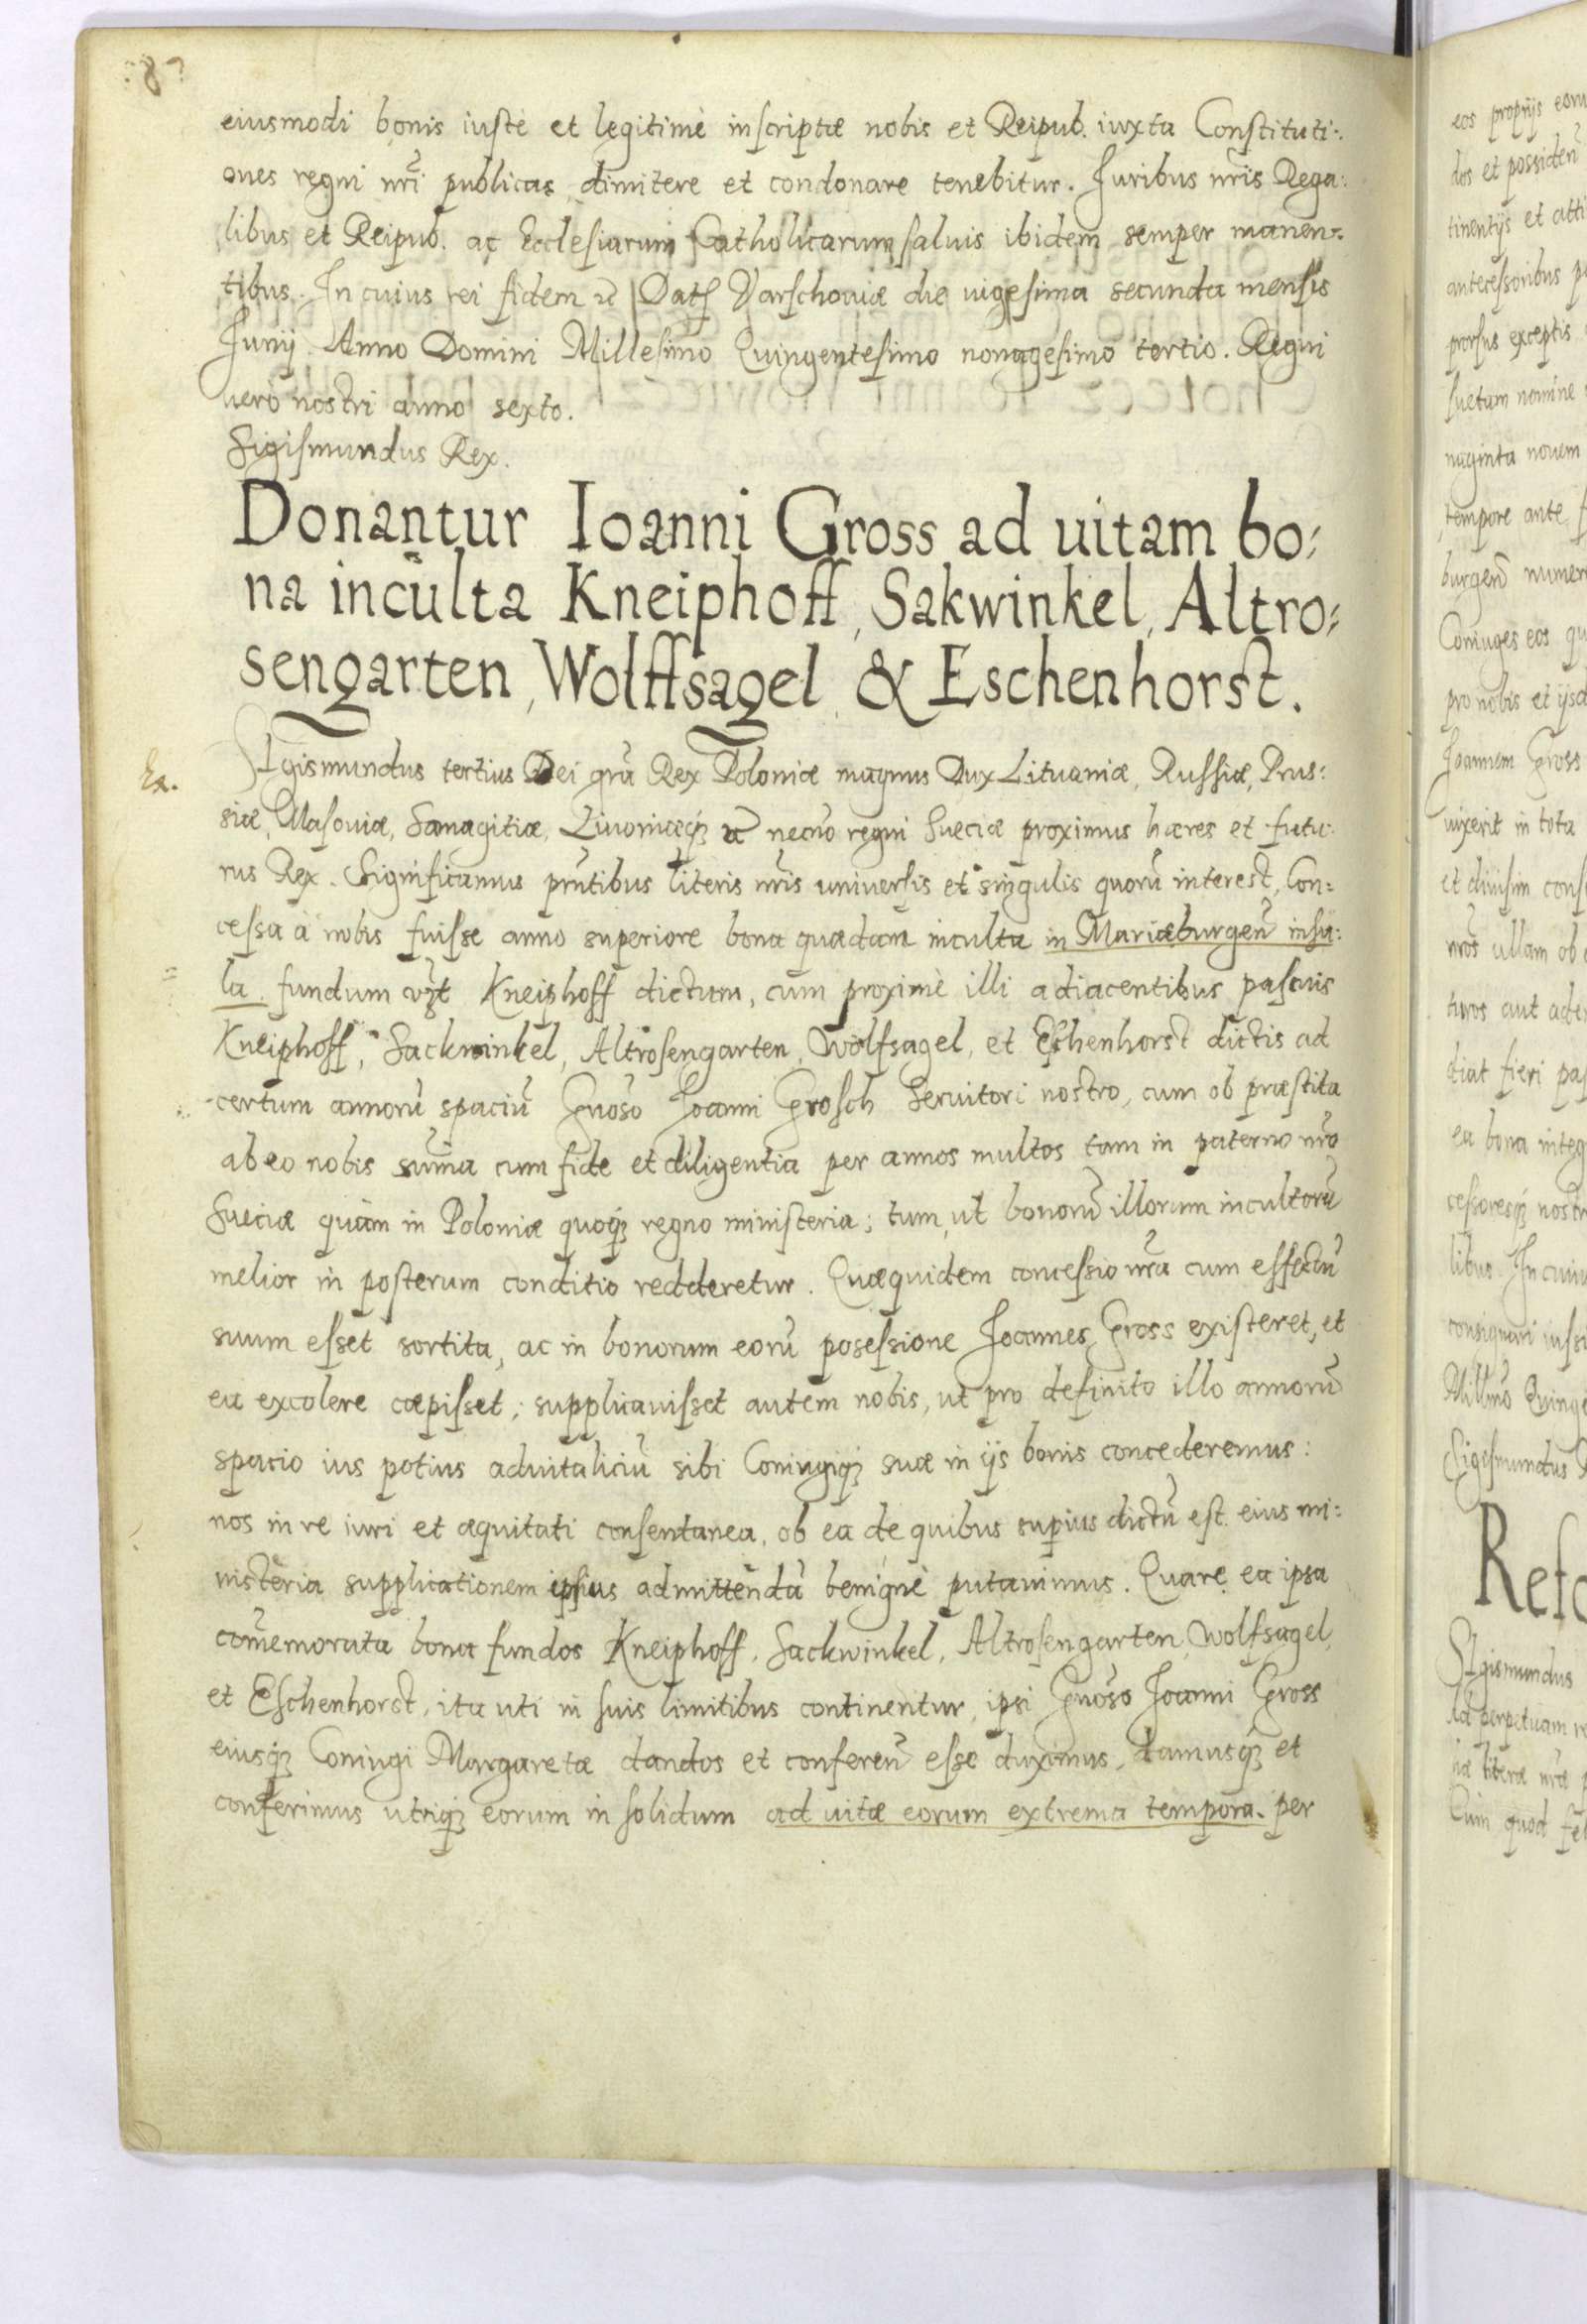 87
eiusmodi bonis iustè et legitimè inscriptæ nobis et Reipub. iuxta Constituti:
ones regni nr̃i publicas dimitere et condonare tenebitur. Iuribus nr̃is Rega:
libus et Reipub. ac Ecclesiarum Catholicarum saluis ibidem semper manen:
tibus. In cuius rei fidem etc̃ Dat Varschouiæ die uigesima secunda mensis
Iunij. Anno Domini Millesimo Quingentesimo nonagesimo tertio. Regni
uerò nostri anno sexto.
Sigismundus Rex.
Donantur Ioanni Gross ad uitam bo:
na inculta Kneiphoff, Sakwinkel, Altro:
sengarten, Wolffsagel & Eschenhorst.
Ex.
SIgismundus tertius Dei grã Rex Poloniæ magnus Dux Lituaniæ, Russiæ, Prus:
siæ, Masouiæ, Samagitiæ, Liuoniæq; etc̃ necnõ regni Sueciæ proximus hæres et futu:
rus Rex. Significamus pr̃ntibus literis nr̃is uniuersis et singulis quorũ interest, Con:
cessa à nobis fuisse anno superiore bona quædam inculta in Mariæburgeñ insu:
la fundum vz̃t Kneiphoff dictum, cum proximè illi adiacentibus pascuis
Kneiphoff, Sackwinkel, Altrosengarten, Wolfsagel, et Eschenhorst dictis ad
certum annorũ spaciũ Gnõso Joanni Grosch Seruitori nostro, cum ob præstita
ab eo nobis sum̃a cum fide et diligentia per annos multos tam in paterno nr̃o
Sueciæ quàm in Poloniæ quoq; regno ministeria; tum, ut bonorũ illorum incultorũ
melior in posterum conditio redderetur. Quæquidem concessio nr̃a cum effectũ
suum esset sortita, ac in bonorum eorũ posessione Joannes Gross existeret, et
ea excolere cæpisset; supplicauisset autem nobis, ut pro definito illo annorũ
spacio ius potius aduitaliciũ sibi Coniugiq; suæ in ijs bonis concederemus:
nos in re iuri et æquitati consentanea, ob ea de quibus supius dictũ est eius mi:
nisteria supplicationem ipsius admittendã benignè putauimus. Quare ea ipsa
com̃emorata bona fundos Kneiphoff, Sackwinkel, Altrosengarten, Wolfsagel,
et Eschenhorst, ita uti in suis limitibus continentur, ipsi Gnõso Joanni Gross
eiusq; Coniugi Margaretæ dandos et confereñ esse duximus, damusq; et
conferimus utriq; eorum in solidum ad uitæ eorum extrema tempora. per
eos proprijs
dos et possideñ
tinentijs et
antecessoribus
prorsus exceptis
suetam nomine
naginta nouem
tempore ante
burgeñ
Coniuges eos
pro nobis et
Joannem Gross
uixerit in tota
et diuisim
nr̃os ullam ob
turos aut
fieri
ea bona
cessoresq;
libus. In
consignari
Quinge
Sigismundus
Refo
SIgismundus
Ad perpetuam
literæ nr̃æ
quod